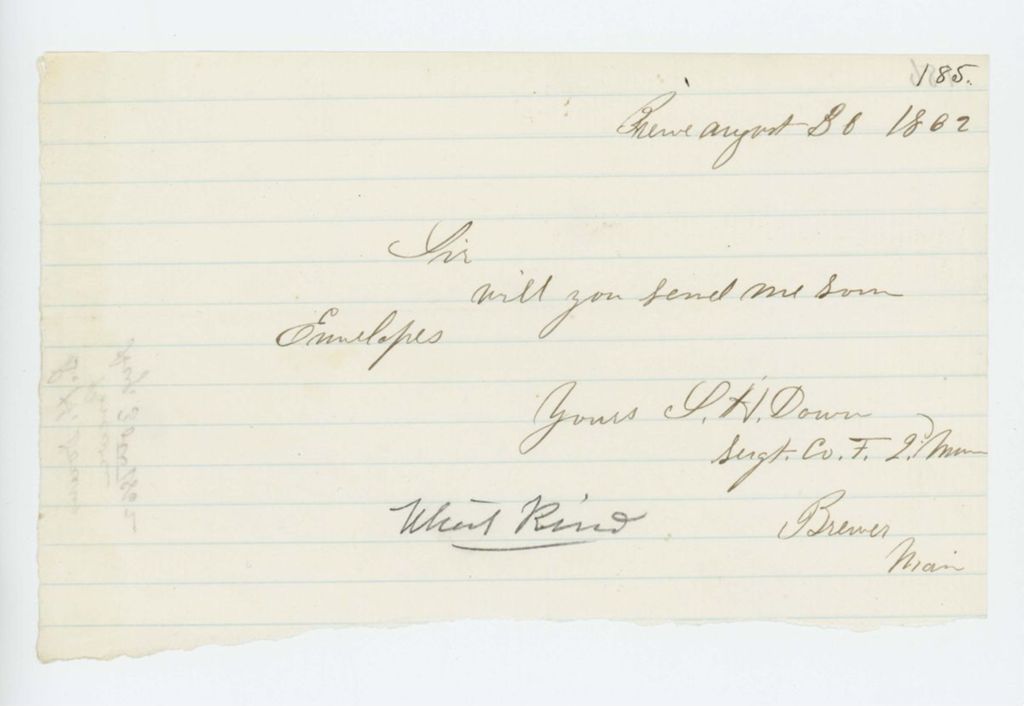 185.
Brewe august 30 1862
Sir
will you send me som
Envelopes
Yours S. H. Down
Sergt. Co. F. 2d
What Kind
Brewer
Main